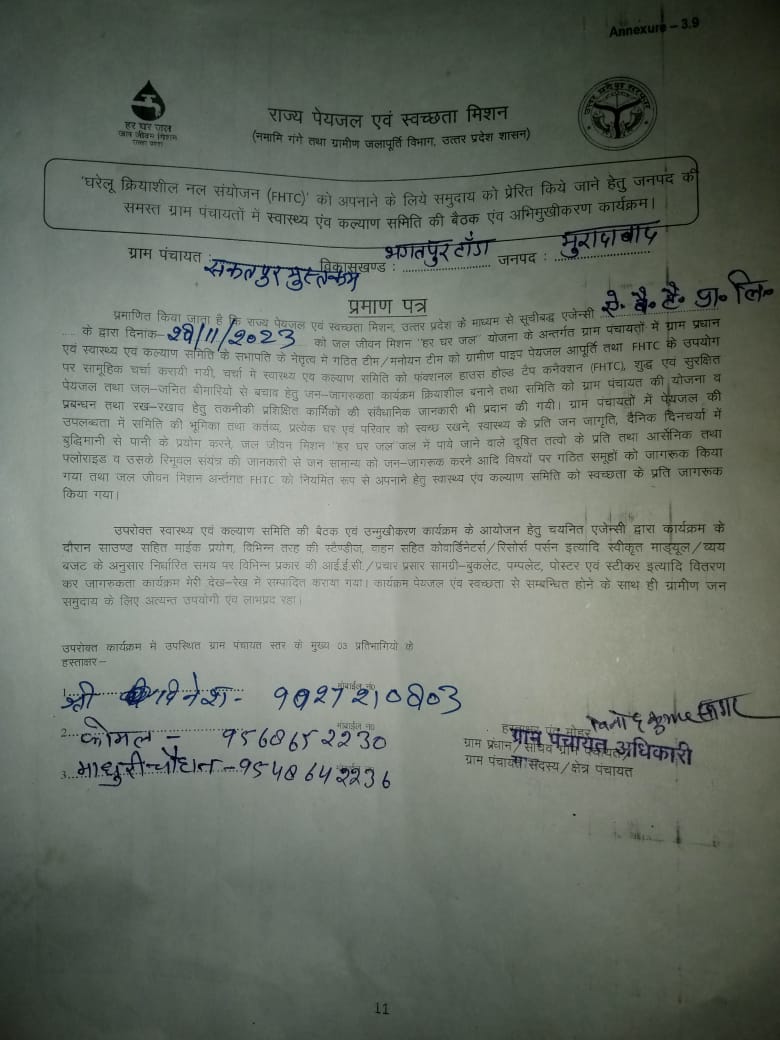 Annexure – 3.9
हर घर जल
जल जीवन मिशन
उत्तर प्रदेश सरकार
राज्य पेयजल एवं स्वच्छता मिशन
(नमामि गंगे तथा ग्रामीण जलापूर्ति विभाग, उत्तर प्रदेश शासन)
'घरेलू क्रियाशील नल संयोजन (FHTC)' को अपनाने के लिये समुदाय को प्रेरित किये जाने हेतु जनपद की
समस्त ग्राम पंचायतों में स्वास्थ्य एंव कल्याण समिति की बैठक एंव अभिमुखीकरण कार्यक्रम।
ग्राम पंचायत : विकासखण्ड : भगतपुर टाँडा जनपद : मुरादाबाद
प्रमाण पत्र
प्रमाणित किया जाता है कि राज्य पेयजल एवं स्वच्छता मिशन, उत्तर प्रदेश के माध्यम से सूचीबद्ध एजेन्सी प्रा॰ लि॰
के द्वारा दिनाक- /11/2023 को जल जीवन मिशन "हर घर जल" योजना के अन्तर्गत ग्राम पंचायतों में ग्राम प्रधान
एवं स्वास्थ्य एवं कल्याण समिति के सभापति के नेतृत्व में गठित टीम/मनोयन टीम को ग्रामीण पाइप पेयजल आपूर्ति तथा FHTC के उपयोग
पर सामूहिक चर्चा करायी गयी, चर्चा में स्वास्थ्य एंव कल्याण समिति को फंक्शनल हाउस होल्ड टैप कनैक्शन (FHTC), शुद्ध एवं सुरक्षित
पेयजल तथा जल–जनित बीमारियों से बचाव हेतु जन–जागरुकता कार्यक्रम क्रियाशील बनाने तथा समिति को ग्राम पंचायत की योजना व
प्रबन्धन तथा रख–रखाव हेतु तकनीकी प्रशिक्षित कार्मिकों की संवैधानिक जानकारी भी प्रदान की गयी। ग्राम पंचायतों में पेयजल की
उपलब्धता में समिति की भूमिका तथा कर्तव्य, प्रत्येक घर एवं परिवार को स्वच्छ रखने, स्वास्थ्य के प्रति जन जागृति, दैनिक दिनचर्या में
बुद्धिमानी से पानी के प्रयोग करने, जल जीवन मिशन "हर घर जल जल में पाये जाने वाले दूषित तत्वो के प्रति तथा आर्सेनिक तथा
फ्लोराइड व उसके रिमूवल संयंत्र की जानकारी से जन सामान्य को जन–जागरुक करने आदि विषयों पर गठित समूहों को जागरूक किया
गया तथा जल जीवन मिशन अर्न्तगत FHTC को नियमित रूप से अपनाने हेतु स्वास्थ्य एंव कल्याण समिति को स्वच्छता के प्रति जागरूक
किया गया।
उपरोक्त स्वास्थ्य एवं कल्याण समिति की बैठक एवं उन्मुखीकरण कार्यक्रम के आयोजन हेतु चयनित एजेन्सी द्वारा कार्यक्रम के
दौरान साउण्ड सहित माईक प्रयोग, विभिन्न तरह की स्टेण्डीज, वाहन सहित कोवार्डिनेटर्स/रिसोर्स पर्सन इत्यादि स्वीकृत माड्यूल/व्यय
बजट के अनुसार निर्धारित समय पर विभिन्न प्रकार की आई.ई.सी./प्रचार प्रसार सामग्री-बुकलेट, पम्पलेट, पोस्टर एवं स्टीकर इत्यादि वितरण
कर जागरुकता कार्यक्रम मेरी देख–रेख में सम्पादित कराया गया। कार्यक्रम पेयजल एंव स्वच्छता से सम्बन्धित होने के साथ ही ग्रामीण जन
समुदाय के लिए अत्यन्त उपयोगी एंव लाभप्रद रहा।
उपरोक्त कार्यक्रम में उपस्थित ग्राम पंचायत स्तर के मुख्य 03 प्रतिभागियो के
हस्ताक्षर –
1. श्री मोबाईल नं0
2. कोमल – 9568652230 मोबाईल नं0
3. माधुरी चौहान – 9548642236
हस्ताक्षर एंव मोहर
ग्राम पंचायत अधिकारी
ग्राम प्रधान/सचिव ग्राम पंचायत/
ग्राम पंचायत सदस्य/क्षेत्र पंचायत
11